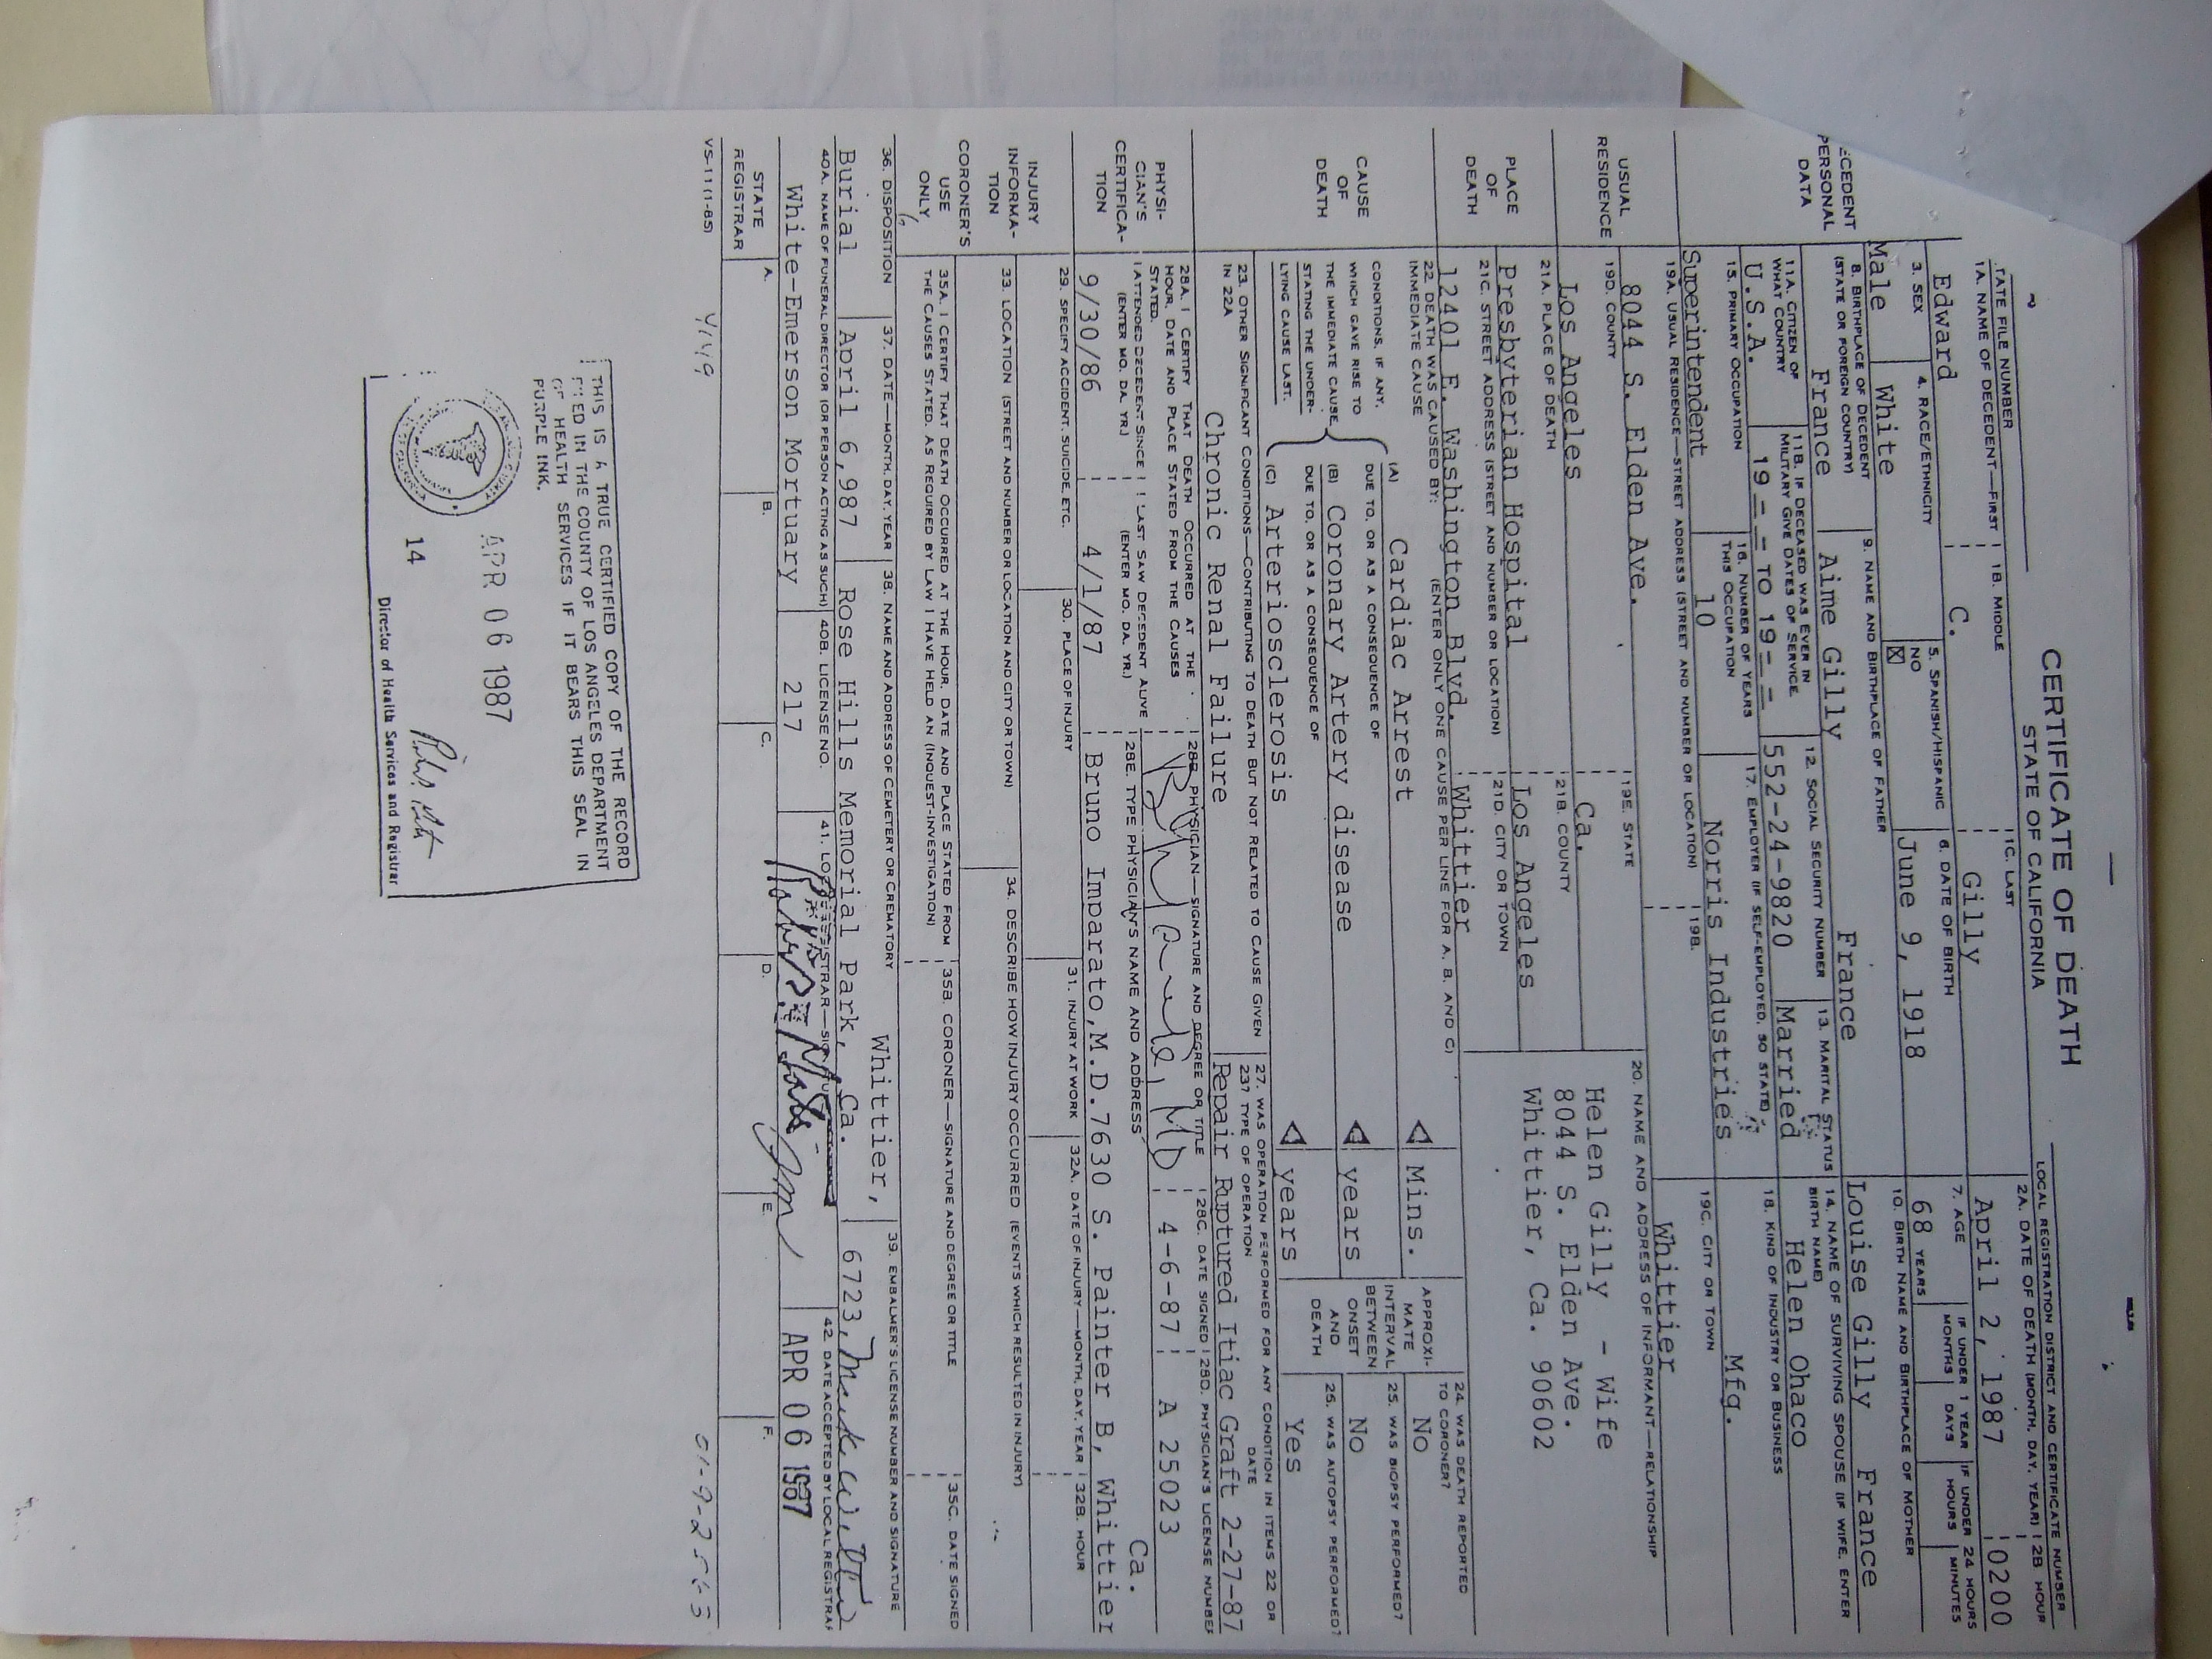 CERTIFICATE OF DEATH
STATE OF CALIFORNIA
TATE FILE NUMBER
LOCAL REGISTRATION DISTRICT AND CERTIFICATE NUMBER
1A. NAME OF DECEDENT—FIRST 1B. MIDDLE 1C. LAST 2A. DATE OF DEATH (MONTH, DAY, YEAR) 2B HOUR
Edward C. Gilly April 2, 1987 0200
3. SEX 4. RACE/ETHNICITY 5. SPANISH/HISPANIC 6. DATE OF BIRTH 7. AGE IF UNDER 1 YEAR IF UNDER 24 HOURS
NO MONTHS DAYS HOURS MINUTES
Male White ☒ June 9, 1918 68 YEARS
ECEDENT PERSONAL DATA
8. BIRTHPLACE OF DECEDENT (STATE OR FOREIGN COUNTRY) 9. NAME AND BIRTHPLACE OF FATHER 10. BIRTH NAME AND BIRTHPLACE OF MOTHER
France Aime Gilly France Louise Gilly France
11A. CITIZEN OF WHAT COUNTRY 11B. IF DECEASED WAS EVER IN MILITARY GIVE DATES OF SERVICE. 12. SOCIAL SECURITY NUMBER 13. MARITAL STATUS 14. NAME OF SURVIVING SPOUSE (IF WIFE, ENTER BIRTH NAME)
U.S.A. 19 - - TO 19 - - 552-24-9820 Married Helen Ohaco
15. PRIMARY OCCUPATION 16. NUMBER OF YEARS THIS OCCUPATION 17. EMPLOYER (IF SELF-EMPLOYED, SO STATE) 18. KIND OF INDUSTRY OR BUSINESS
Superintendent 10 Norris Industries Mfg.
USUAL RESIDENCE
19A. USUAL RESIDENCE—STREET ADDRESS (STREET AND NUMBER OR LOCATION) 19B. 19C. CITY OR TOWN
8044 S. Elden Ave. Whittier
19D. COUNTY 19E. STATE 20. NAME AND ADDRESS OF INFORMANT—RELATIONSHIP
Los Angeles Ca. Helen Gilly - Wife
8044 S. Elden Ave.
Whittier, Ca. 90602
PLACE OF DEATH
21A. PLACE OF DEATH 21B. COUNTY
Presbyterian Hospital Los Angeles
21C. STREET ADDRESS (STREET AND NUMBER OR LOCATION) 21D. CITY OR TOWN
12401 E. Washington Blvd. Whittier
CAUSE OF DEATH
22. DEATH WAS CAUSED BY: (ENTER ONLY ONE CAUSE PER LINE FOR A, B, AND C)
IMMEDIATE CAUSE
(A) Cardiac Arrest Mins.
CONDITIONS, IF ANY, WHICH GAVE RISE TO THE IMMEDIATE CAUSE, STATING THE UNDERLYING CAUSE LAST.
DUE TO, OR AS A CONSEQUENCE OF
(B) Coronary Artery disease years
DUE TO, OR AS A CONSEQUENCE OF
(C) Arteriosclerosis years
APPROXIMATE INTERVAL BETWEEN ONSET AND DEATH
24. WAS DEATH REPORTED TO CORONER?
No
25. WAS BIOPSY PERFORMED?
No
26. WAS AUTOPSY PERFORMED?
Yes
23. OTHER SIGNIFICANT CONDITIONS—CONTRIBUTING TO DEATH BUT NOT RELATED TO CAUSE GIVEN IN 22A
Chronic Renal Failure
27. WAS OPERATION PERFORMED FOR ANY CONDITION IN ITEMS 22 OR 23? TYPE OF OPERATION DATE
Repair Ruptured Itiac Graft 2-27-87
PHYSICIAN'S CERTIFICATION
28A. I CERTIFY THAT DEATH OCCURRED AT THE HOUR, DATE AND PLACE STATED FROM THE CAUSES STATED.
I ATTENDED DECEDENT SINCE (ENTER MO. DA. YR.) I LAST SAW DECEDENT ALIVE (ENTER MO. DA. YR.)
9/30/86 4/1/87
28B. PHYSICIAN—SIGNATURE AND DEGREE OR TITLE 28C. DATE SIGNED 28D. PHYSICIAN'S LICENSE NUMBER
MD 4-6-87 A 25023
28E. TYPE PHYSICIAN'S NAME AND ADDRESS
Bruno Imparato,M.D.7630 S. Painter B, Whittier Ca.
INJURY INFORMATION
29. SPECIFY ACCIDENT, SUICIDE, ETC. 30. PLACE OF INJURY 31. INJURY AT WORK 32A. DATE OF INJURY—MONTH, DAY, YEAR 32B. HOUR
33. LOCATION (STREET AND NUMBER OR LOCATION AND CITY OR TOWN) 34. DESCRIBE HOW INJURY OCCURRED (EVENTS WHICH RESULTED IN INJURY)
CORONER'S USE ONLY
35A. I CERTIFY THAT DEATH OCCURRED AT THE HOUR, DATE AND PLACE STATED FROM THE CAUSES STATED, AS REQUIRED BY LAW I HAVE HELD AN (INQUEST-INVESTIGATION)
35B. CORONER—SIGNATURE AND DEGREE OR TITLE 35C. DATE SIGNED
36. DISPOSITION 37. DATE—MONTH, DAY, YEAR 38. NAME AND ADDRESS OF CEMETERY OR CREMATORY 39. EMBALMER'S LICENSE NUMBER AND SIGNATURE
Burial April 6,987 Rose Hills Memorial Park, Whittier, Ca. 6723,
40A. NAME OF FUNERAL DIRECTOR (OR PERSON ACTING AS SUCH) 40B. LICENSE NO. 41. LOCAL REGISTRAR— 42. DATE ACCEPTED BY LOCAL REGISTRAR
White-Emerson Mortuary 217 APR 06 1987
STATE REGISTRAR A. B. C. D. E. F.
VS-11 (1-85) 4149
THIS IS A TRUE CERTIFIED COPY OF THE RECORD
FILED IN THE COUNTY OF LOS ANGELES DEPARTMENT
OF HEALTH SERVICES IF IT BEARS THIS SEAL IN
PURPLE INK.
APR 06 1987
14
Director of Health Services and Registrar